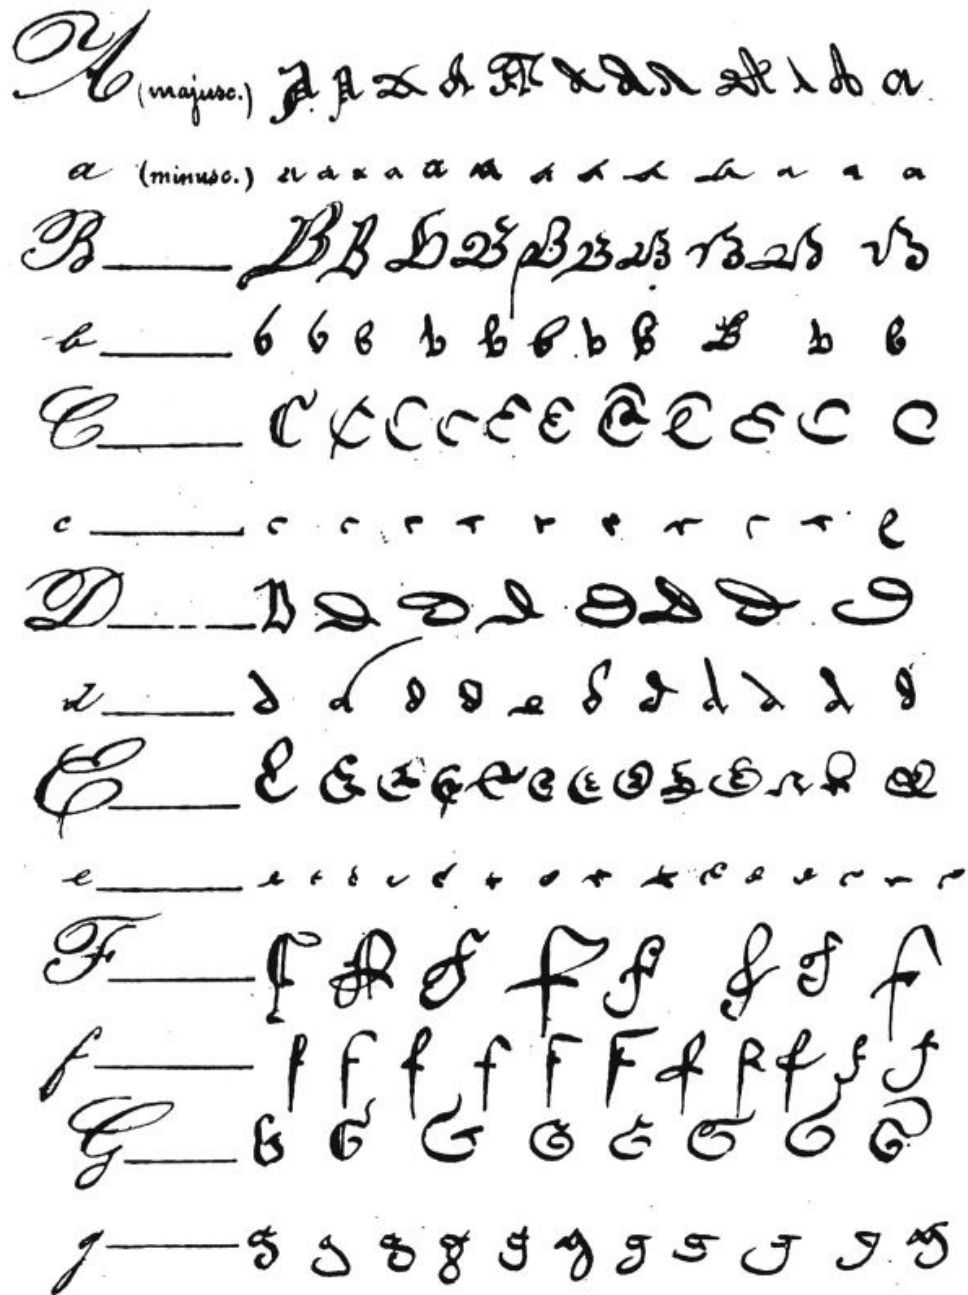 A (majusc.) A A A A A A A A A A A a
a (minusc.) a a a a a a a a a a a a a
B B B B B B B B B B B
b b b b b b b b b b b b
C C C C C C C C C C C C
c c c c c c c c c c c
D D D D D D D D D
d d d d d d d d d d d d
E E E E E E E E E E E E E E
e e e e e e e e e e e e e e e e
F F F F F F F F F
f f f f f f f f f f f f
G G G G G G G G G
g g g g g g g g g g g g